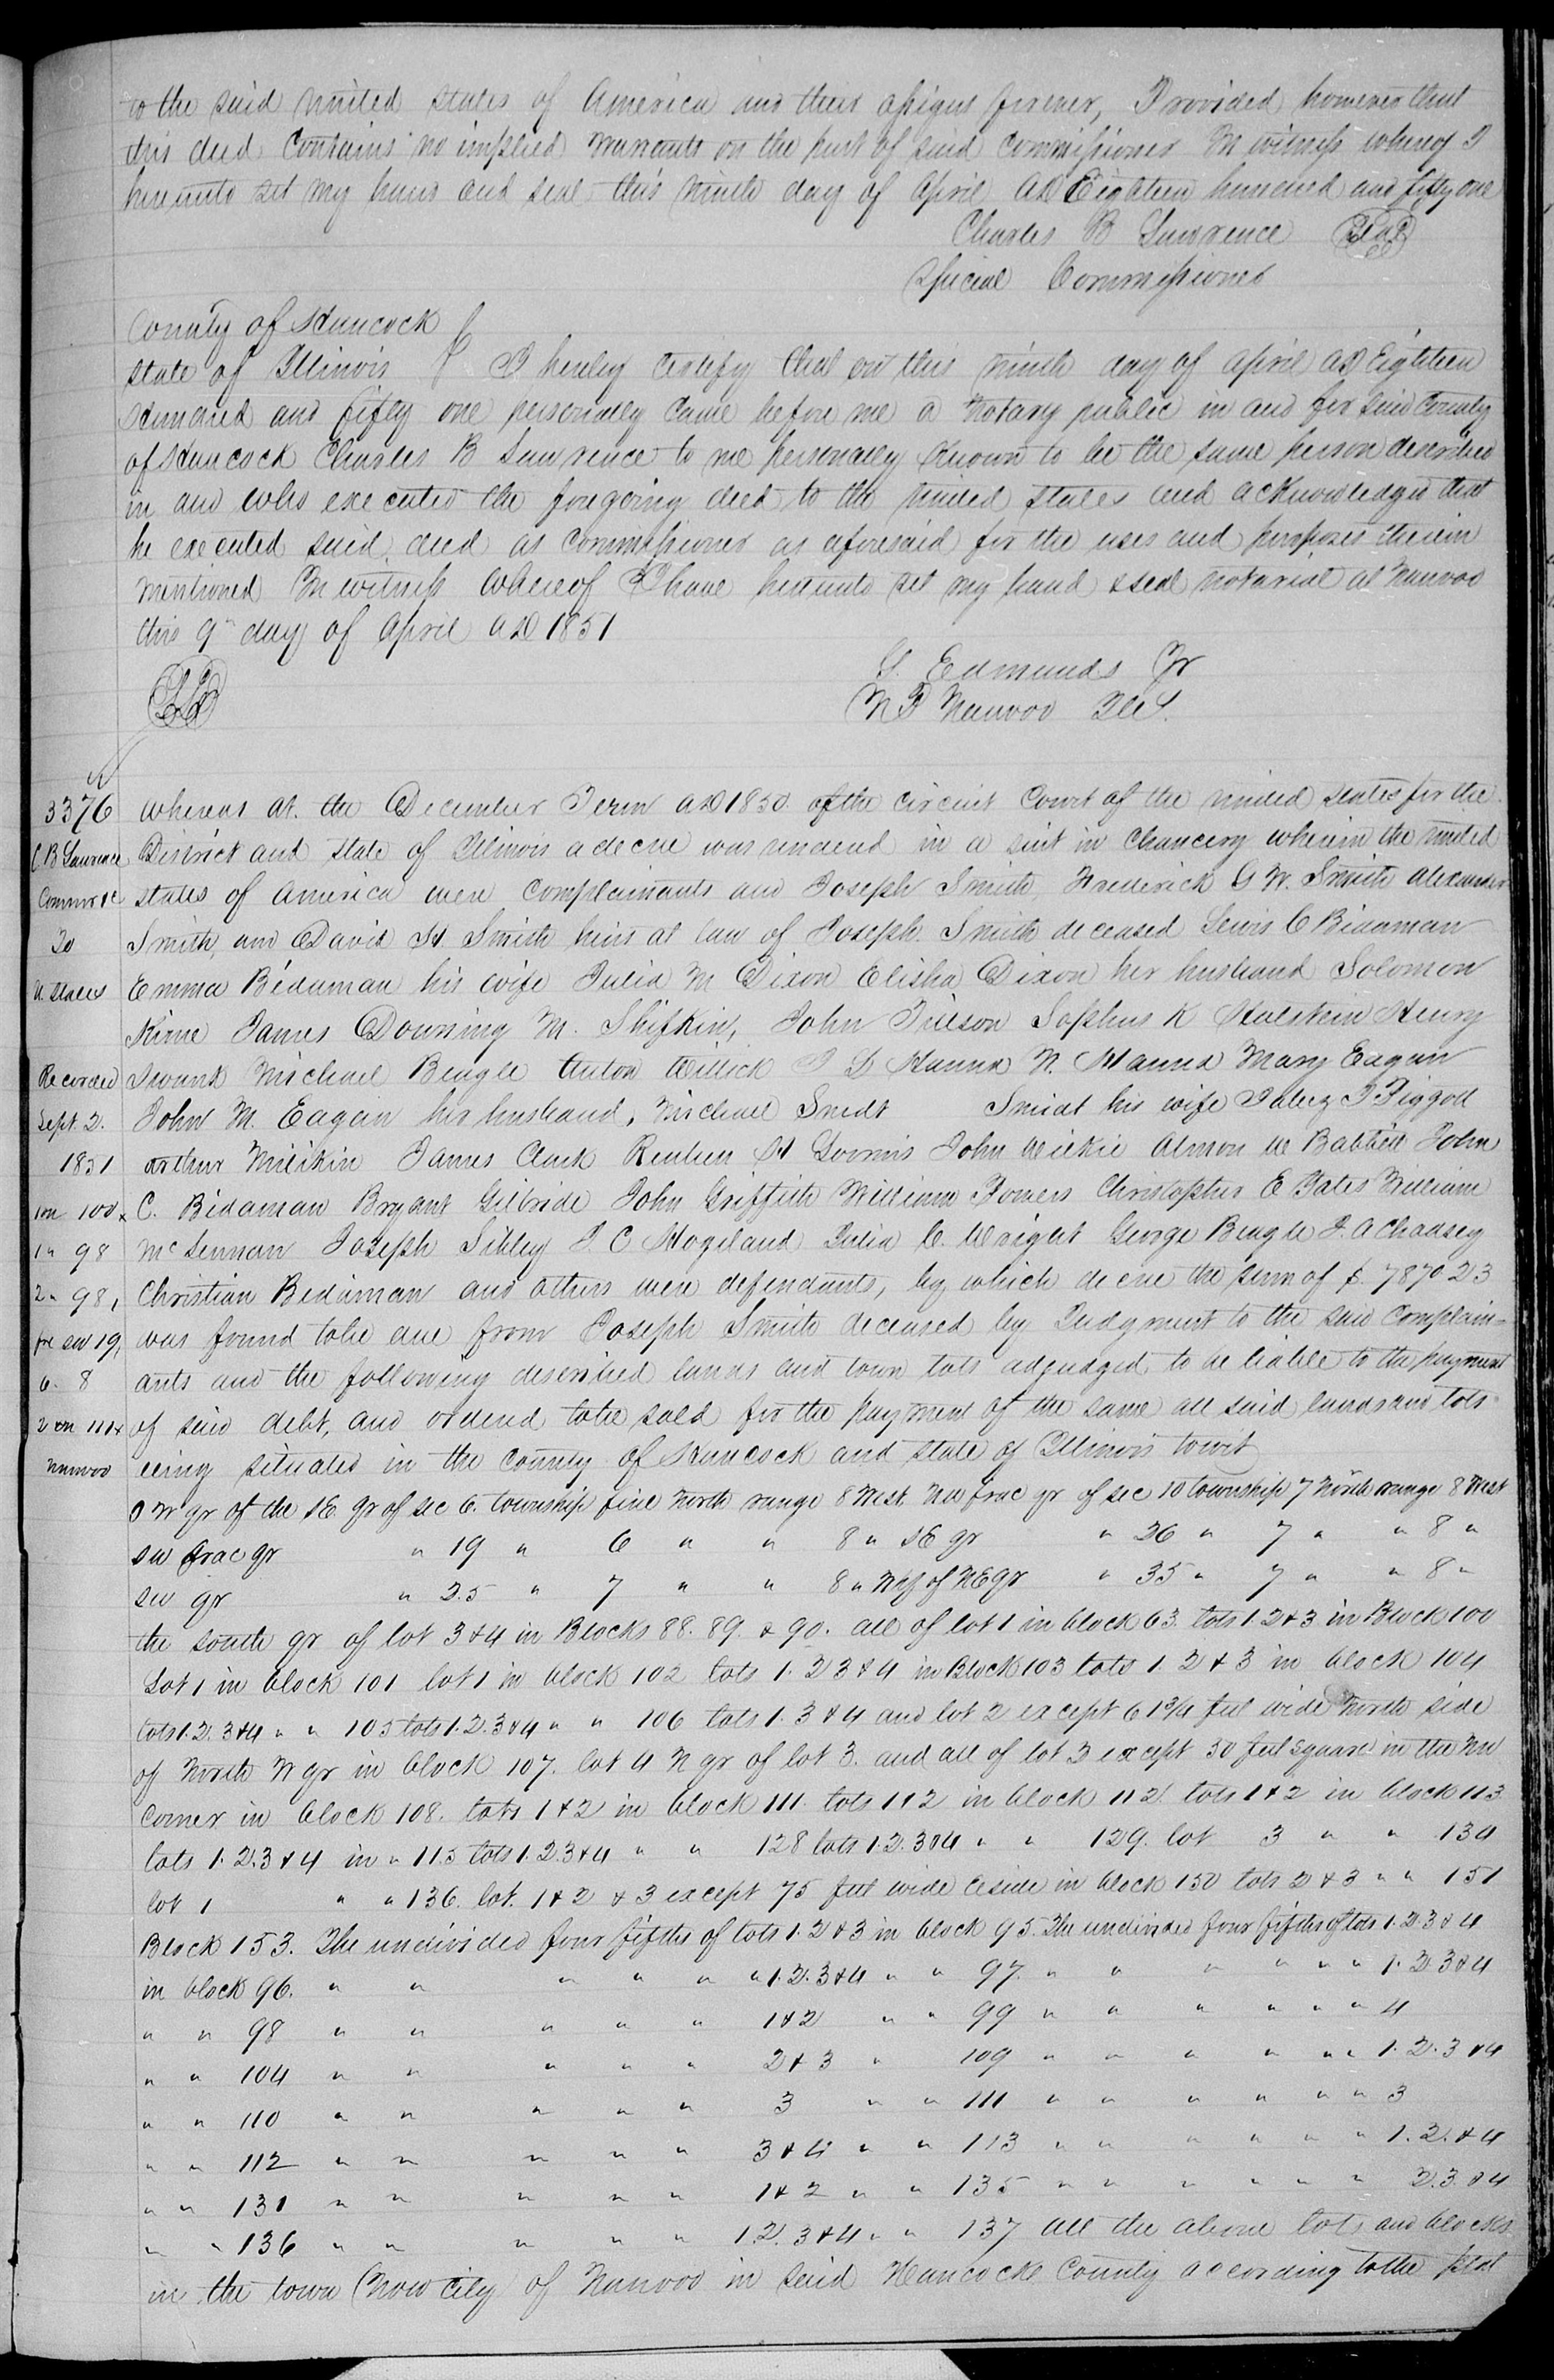 to the said United States of America and their assigns forever, Provided however that
this deed Contains no implied warrants on the part of said Commissioner In witness whereof I
hereunto set my hand and seal this ninth day of April AD Eighteen hundred and fifty one
Charles B Lawrence Seal
Special Commissioner
County of Hancock
State of Illinois I hereby certify that on this ninth day of April AD Eighteen
Hundred and fifty one personally came before me a Notary public in and for said County
of Hancock Charles B Lawrence to me personally Known to be the same person described
in and who executed the foregoing deed to the United States and acknowledged that
he executed said deed as Commissioner as aforesaid for the uses and purposes therein
mentioned In witness whereof I have hereunto set my hand & seal notarial at Nauvoo
this 9th day of April AD 1851
G. Edmunds Jr
N P Nauvoo Ill.
3376
C B Lawrence
Commr &c
To
U. States
Recorded
Sept. 2.
1851
1 on 100 x
1 " 98
2 " 98,
fr sw 19,
6. 8
2 on 111 x
Nauvoo
Whereas at the December Term AD 1850 of the Circuit Court of the United States for the
District and State of Illinois a decree was rendered in a suit in Chancery wherein the United
States of America were Complainants and Joseph Smith, Frederick G W. Smith Alexander
Smith, and David H Smith heirs at law of Joseph Smith deceased Lewis C Bidaman
Emma Bidaman his wife Julia M Dixon Elisha Dixon her husband Solomon
James Downing M. Shifkin, John Tilson Sophus K Holstein Henry
Swank Michael Beagle Anton J D Hanna N. Hanna Mary Eagan
John M. Eagan her husband, Michael Smidt Smidt his wife Jabez
Arthur Milikin James Clark Reuben H Loomis John Wickie Almon W Babbitt John
C. Bidaman Bryant Gilbride John Griffith William Powers Christopher E Yates William
McLennan Joseph Sibley J. C Hogeland Julia C. Wright George Beagle J. A Chausey
Christian Bidaman and others were defendants, by which decree the sum of $ 7870.23
was found to be due from Joseph Smith deceased by Judgment to the said Complain-
ants and the following described lands and town lots adjudged to be liable to the payment
of said debt, and ordered to be sold for the payment of the same all said lands and lots
being situated in the County of Hancock and State of Illinois to wit
S W qr of the SE qr of sec 6 township five North range 8 West. NW frac qr of sec 10 township 7 North range 8 West
SW frac qr " 19 " 6 " " 8 " SE qr " 26 " 7 " " 8 "
SW qr " 25 " 7 " " 8 " W hf of NE qr " 35 " 7 " " 8 "
the south qr of lot 3 & 4 in Blocks 88. 89. & 90. all of lot 1 in block 63. lots 1 2 & 3 in Block 100
Lot 1 in block 101 lot 1 in block 102 lots 1. 2 3 & 4 in Block 103 lots 1. 2 & 3 in block 104
lots 1. 2. 3 & 4 " " 105 lots 1. 2. 3 & 4 " " 106 lots 1. 3 & 4 and lot 2 except 61 3/4 feet wide North side
of North W qr in block 107. lot 4 N qr of lot 3. and all of lot 2 except 50 feet square in the NW
Corner in block 108. lots 1 & 2 in block 111. lots 1 & 2 in block 112. lots 1 & 2 in block 113
lots 1. 2. 3 & 4 in " 115 lots 1. 2. 3 & 4 " " 128 lots 1. 2. 3 & 4 " " 129. lot 3 " " 134
lot 1 " " 136. lot. 1 & 2 & 3 except 75 feet wide in block 150 lots 2 & 3 " " 151
Block 153. The undivided four fifths of lots 1. 2 & 3 in block 95. The undivided four fifths of lots 1. 2. 3 & 4
in block 96. " " " " " " 1. 2. 3 & 4 " " 97. " " " " " " 1. 2. 3 & 4
" " 98 " " " " " 1 & 2 " " 99 " " " " " " 4
" " 104 " " " " " 2 & 3 " 109 " " " " " " 1. 2. 3 & 4
" " 110 " " " " " 3 " " 111 " " " " " " 3
" " 112 " " " " " 3 & 4 " " 113 " " " " " " 1. 2. & 4
" " 131 " " " " " 1 & 2 " " 135 " " " " " " 2. 3. & 4
" " 136 " " " " " 1. 2. 3 & 4 " " 137 all the above lots and blocks
in the town (now City) of Nauvoo in said Hancock County according to the plat